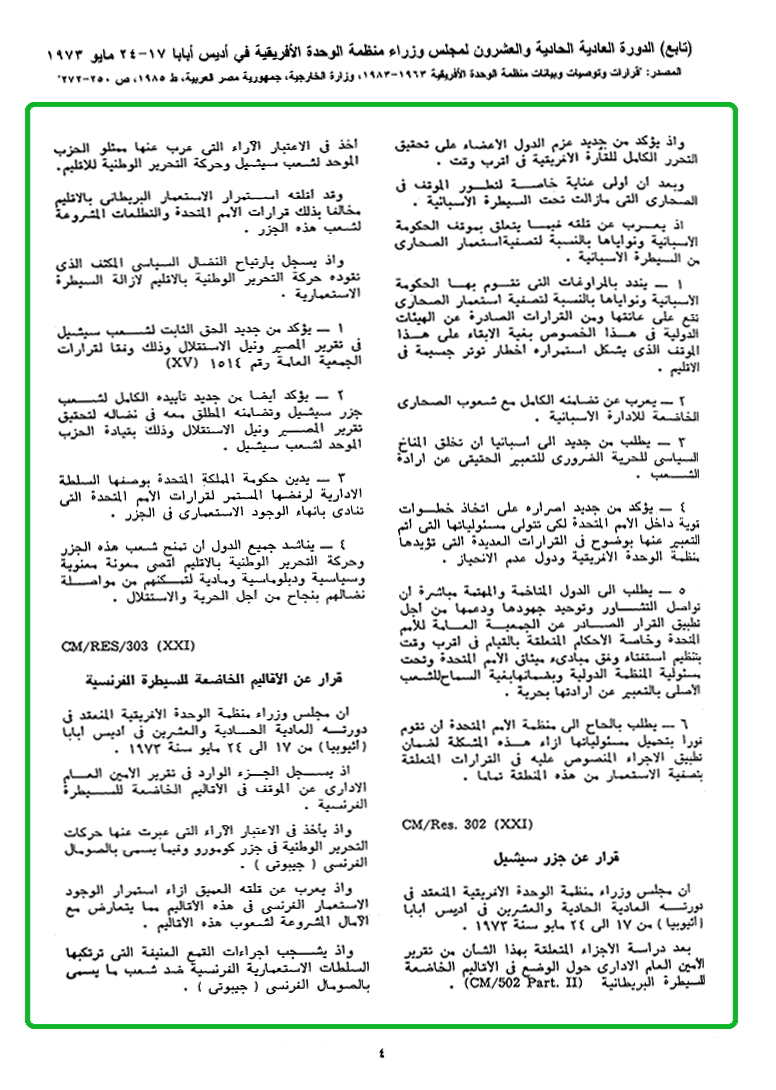 (تابع) الدورة العادية الحادية والعشرون لمجلس وزراء منظمة الوحدة الأفريقية في أديس أبابا ١٧-٢٤ مايو ١٩٧٣
المصدر: "قرارات وتوصيات وبيانات منظمة الوحدة الأفريقية ١٩٦٣-١٩٨٣، وزارة الخارجية، جمهورية مصر العربية، ط ١٩٨٥، ص ٢٥٠-٢٧٢"
واذ يؤكد من جديد عزم الدول الأعضاء على تحقيق
التحرر الكامل للقارة الأفريقية فى أقرب وقت .
وبعد أن أولى عناية خاصة لتطور الموقف فى
الصحارى التى مازالت تحت السيطرة الأسبانية .
اذ يعرب عن قلقه فيما يتعلق بموقف الحكومة
الأسبانية ونواياها بالنسبة لتصفية استعمار الصحارى
من السيطرة الأسبانية .
١ — يندد بالمراوغات التى تقوم بها الحكومة
الأسبانية ونواياها بالنسبة لتصفية استعمار الصحارى
تقع على عاتقها ومن القرارات الصادرة عن الهيئات
الدولية فى هذا الخصوص بغية الابقاء على هذا
الموقف الذى يشكل استمراره أخطار توتر جسيمة فى
الاقليم .
٢ — يعرب عن تضامنه الكامل مع شعوب الصحارى
الخاضعة للادارة الأسبانية .
٣ — يطلب من جديد الى أسبانيا أن تخلق المناخ
السياسى للحرية الضرورى للتعبير الحقيقى عن ارادة
الشعب .
٤ — يؤكد من جديد اصراره على اتخاذ خطوات
قوية داخل الأمم المتحدة لكى تتولى مسئولياتها التى أتم
التعبير عنها بوضوح فى القرارات العديدة التى تؤيدها
منظمة الوحدة الأفريقية ودول عدم الانحياز .
٥ — يطلب الى الدول المتاخمة والمهتمة مباشرة أن
تواصل التشاور وتوحيد جهودها ودعمها من أجل
تطبيق القرار الصادر عن الجمعية العامة للأمم
المتحدة وخاصة الأحكام المتعلقة بالقيام فى أقرب وقت
بتنظيم استفتاء وفق مبادىء ميثاق الأمم المتحدة وتحت
مسئولية المنظمة الدولية وبضمانها بغية السماح للشعب
الأصلى بالتعبير عن ارادتها بحرية .
٦ — يطلب بالحاح الى منظمة الأمم المتحدة أن تقوم
فورا بتحميل مسئولياتها ازاء هذه المشكلة لضمان
تطبيق الاجراء المنصوص عليه فى القرارات المتعلقة
بتصفية الاستعمار من هذه المنطقة تماما .
CM/Res. 302 (XXI)
قرار عن جزر سيشيل
ان مجلس وزراء منظمة الوحدة الأفريقية المنعقد فى
دورته العادية الحادية والعشرين فى أديس أبابا
( أثيوبيا ) من ١٧ الى ٢٤ مايو سنة ١٩٧٣ .
بعد دراسة الأجزاء المتعلقة بهذا الشأن من تقرير
الأمين العام الادارى حول الوضع فى الأقاليم الخاضعة
للسيطرة البريطانية (CM/502 Part. II) .
أخذ فى الاعتبار الآراء التى عرب عنها ممثلو الحزب
الموحد لشعب سيشيل وحركة التحرير الوطنية للاقليم.
وقد أقلقه استمرار الاستعمار البريطانى بالاقليم
مخالفا بذلك قرارات الأمم المتحدة والتطلعات المشروعة
لشعب هذه الجزر .
واذ يسجل بارتياح النضال السياسى المكثف الذى
تقوده حركة التحرير الوطنية بالاقليم لازالة السيطرة
الاستعمارية .
١ — يؤكد من جديد الحق الثابت لشعب سيشيل
فى تقرير المصير ونيل الاستقلال وذلك وفقا لقرارات
الجمعية العامة رقم ١٥١٤ (XV)
٢ — يؤكد أيضا من جديد تأييده الكامل لشعب
جزر سيشيل وتضامنه المطلق معه فى نضاله لتحقيق
تقرير المصير ونيل الاستقلال وذلك بقيادة الحزب
الموحد لشعب سيشيل .
٣ — يدين حكومة المملكة المتحدة بوصفها السلطة
الادارية لرفضها المستمر لقرارات الأمم المتحدة التى
تنادى بانهاء الوجود الاستعمارى فى الجزر .
٤ — يناشد جميع الدول أن تمنح شعب هذه الجزر
وحركة التحرير الوطنية بالاقليم أقصى معونة معنوية
وسياسية ودبلوماسية ومادية لتمكنهم من مواصلة
نضالهم بنجاح من أجل الحرية والاستقلال .
CM/RES/303 (XXI)
قرار عن الأقاليم الخاضعة للسيطرة الفرنسية
ان مجلس وزراء منظمة الوحدة الأفريقية المنعقد فى
دورته العادية الحادية والعشرين فى أديس أبابا
( أثيوبيا ) من ١٧ الى ٢٤ مايو سنة ١٩٧٣ .
اذ يسجل الجزء الوارد فى تقرير الأمين العام
الادارى عن الموقف فى الأقاليم الخاضعة للسيطرة
الفرنسية .
واذ يأخذ فى الاعتبار الآراء التى عبرت عنها حركات
التحرير الوطنية فى جزر كومورو وفيما يسمى بالصومال
الفرنسى ( جيبوتى ) .
واذ يعرب عن قلقه العميق ازاء استمرار الوجود
الاستعمار الفرنسى فى هذه الأقاليم مما يتعارض مع
الآمال المشروعة لشعوب هذه الأقاليم .
واذ يشجب اجراءات القمع العنيفة التى ترتكبها
السلطات الاستعمارية الفرنسية ضد شعب ما يسمى
بالصومال الفرنسى ( جيبوتى ) .
٤